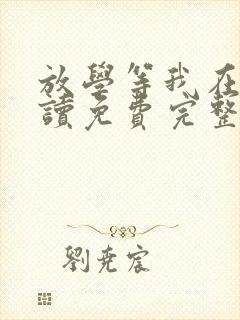 放學等我在
讀免費完整
劉堯宸